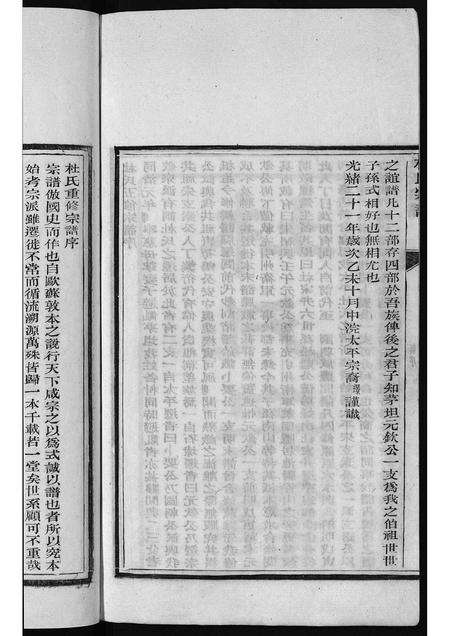 之誼譜凡十二部存四部於吾族俾後之君子知茅坦元欽公一支為我之伯祖世世
子孫式相好也無相尤也
光緒二十一年歲次乙未十月中浣太平宗裔謹識
杜氏重修宗譜序
宗譜倣國史而作也自歐蘇敦本之說行天下咸宗之以為式誠以譜也者所以究本
始考宗派雖遷徙不常而循流溯源萬殊皆歸一本千載若一堂矣世系顧可不重哉